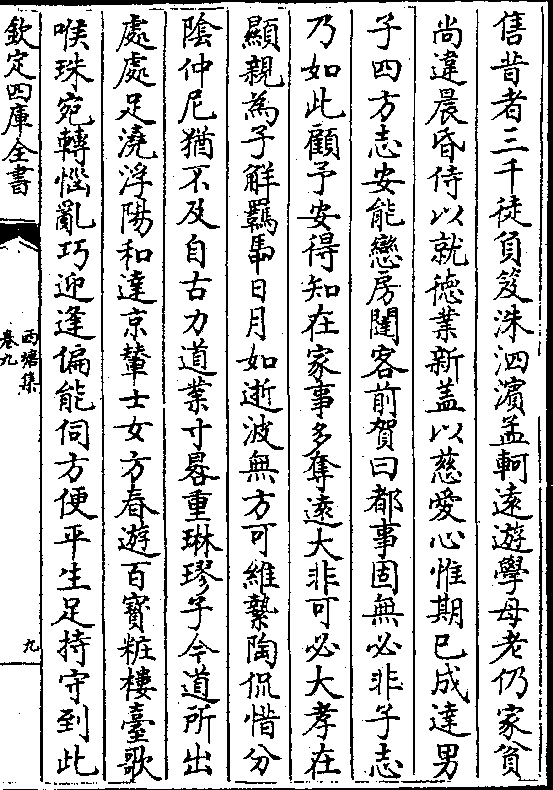 售昔者三千徒負笈洙泗濱孟軻遠遊學母老仍家貧
尚違晨昏侍以就徳業新盖以慈愛心惟期已成達男
子四方志安能戀房闥客前賀曰都事固無必非子志
乃如此顧予安得知在家事多奪逺大非可必大孝在
顯親為子解羈馽日月如逝波無方可維縶陶侃惜分
陰仲尼猶不及自古力道業寸晷重琳璆子今道所出
處處足澆浮陽和達京輦士女方春遊百寶粧樓臺歌
喉珠宛轉惱亂巧迎逢偏能伺方便平生足持守到此
欽定四庫全書
西塘集
卷九
九